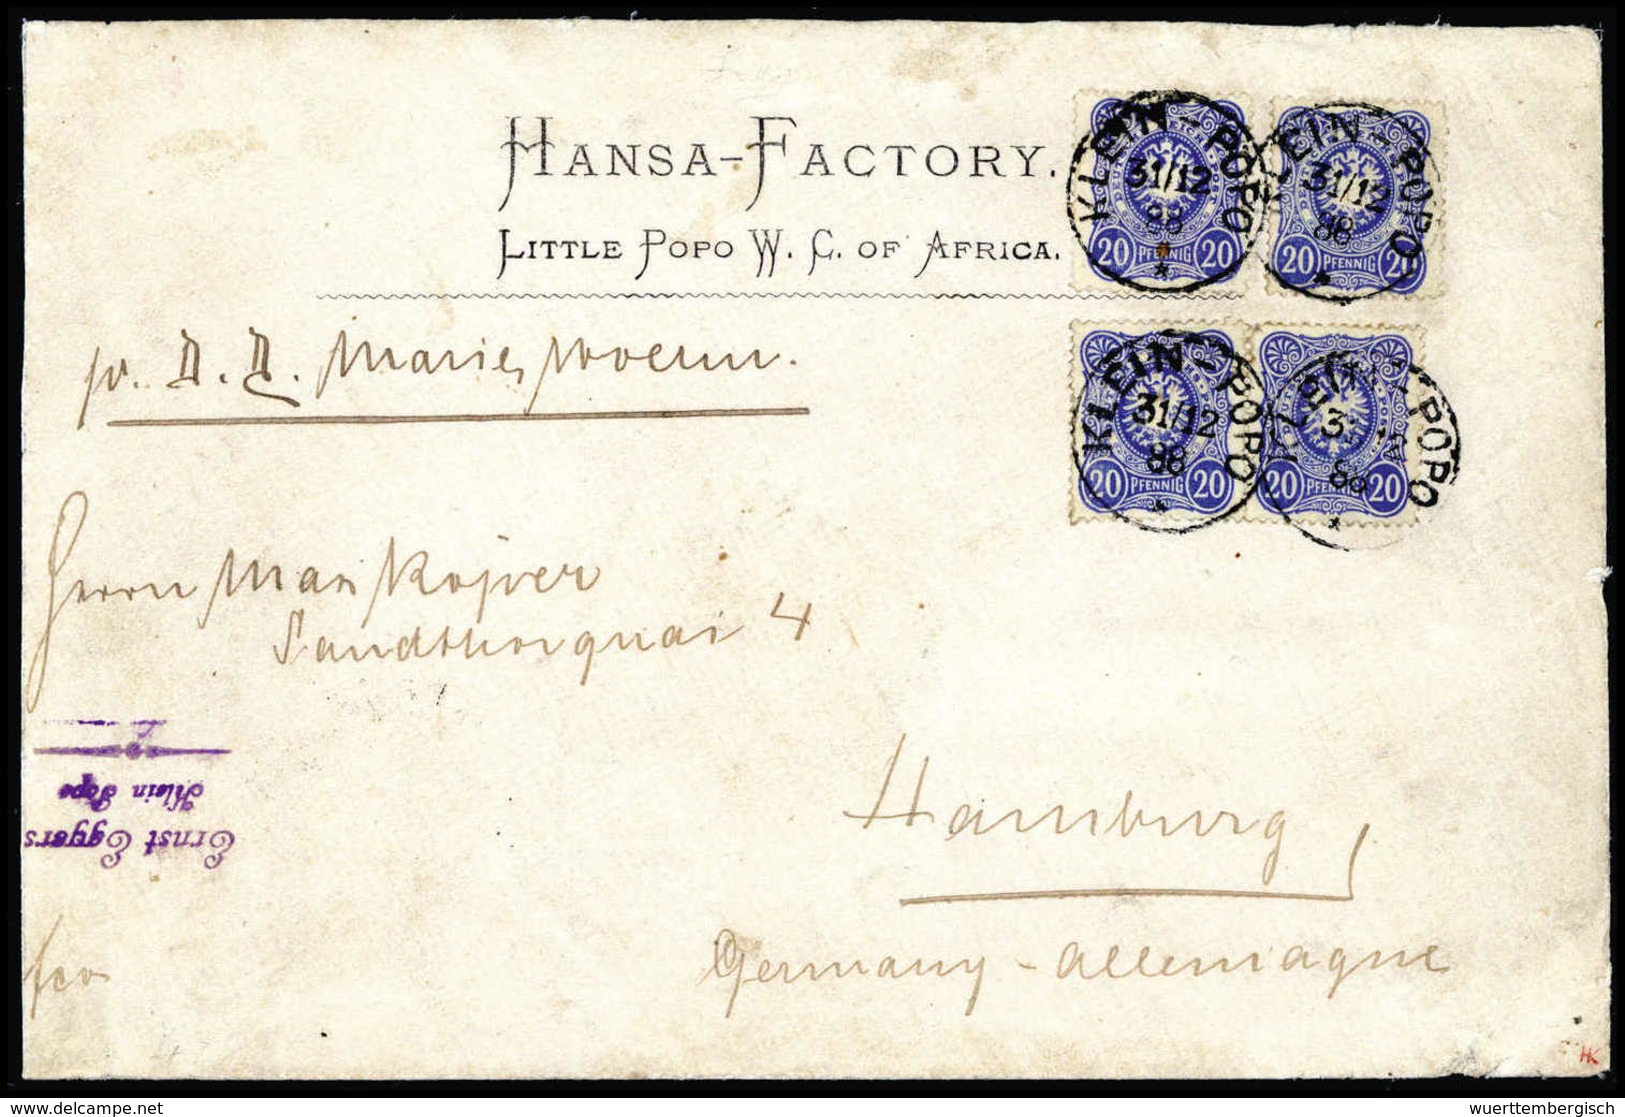 HANSA-FACTORY.
LITTLE POPO W. C. OF AFRICA.
KLEIN-POPO
31/12
88
*
20 PFENNIG 20
KLEIN-POPO
31/12
88
*
20 PFENNIG 20
KLEIN-POPO
31/12
88
*
20 PFENNIG 20
KLEIN-POPO
3
*
20 PFENNIG 20
p. D. D. Marie Woerm.
Herrn Max Köper
Sandthorquai 4
Ernst Eggers
Klein Popo
Hamburg
fco
Germany - Allemagne
HK
www.delcampe.net
wuerttembergisch